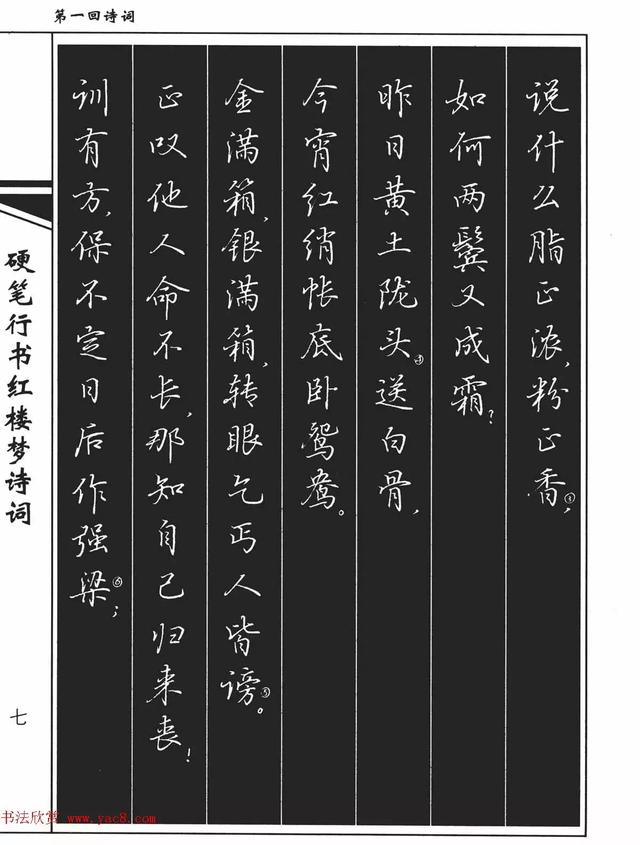 第一回诗词
说什么脂正浓，粉正香④，
如何两鬓又成霜？
昨日黄土陇头④送白骨，
今宵红绡帐底卧鸳鸯。
金满箱，银满箱，转眼乞丐人皆谤⑤。
正叹他人命不长，那知自己归来丧！
训有方，保不定日后作强梁⑥；
硬笔行书红楼梦诗词
七
书法欣赏 www.yac8.com